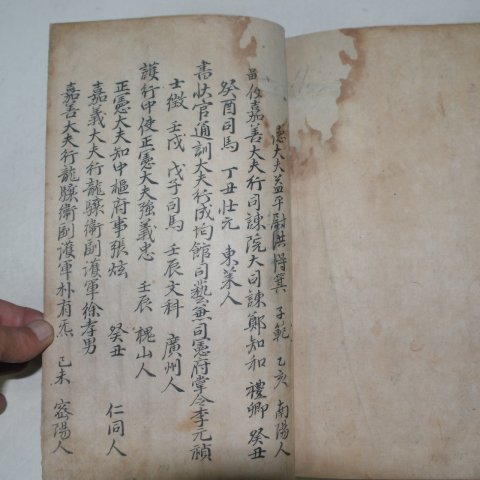 憲大夫益平尉洪得箕 子範 乙亥 南陽人
副使嘉善大夫行司諫院大司諫鄭知和 禮卿 癸丑
癸酉司馬 丁丑壯元 東萊人
書狀官通訓大夫行成均館司藝兼司憲府掌令李元禎
士徵 壬戌 戊子司馬 壬辰文科 廣州人
護行中使正憲大夫強義忠 壬辰 槐山人
正憲大夫知中樞府事張炫 癸丑 仁同人
嘉義大夫行龍驤衛副護軍徐孝男
嘉善大夫行龍驤衛副護軍朴有 己未 密陽人